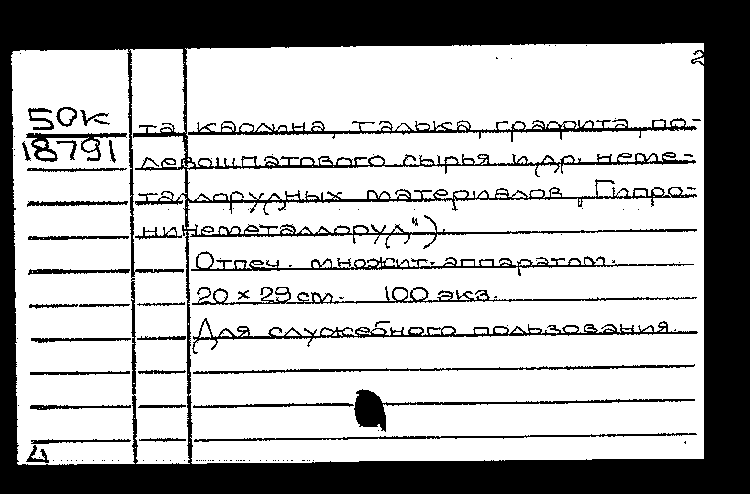 2
50к
18791
та каолина, талька, графита, по-
левошпатового сырья и др. неме-
таллорудных материалов „Гипро-
нинеметаллоруд“).
Отпеч. множит. аппаратом.
20 × 29 см. 100 экз.
Для служебного пользования.
Д